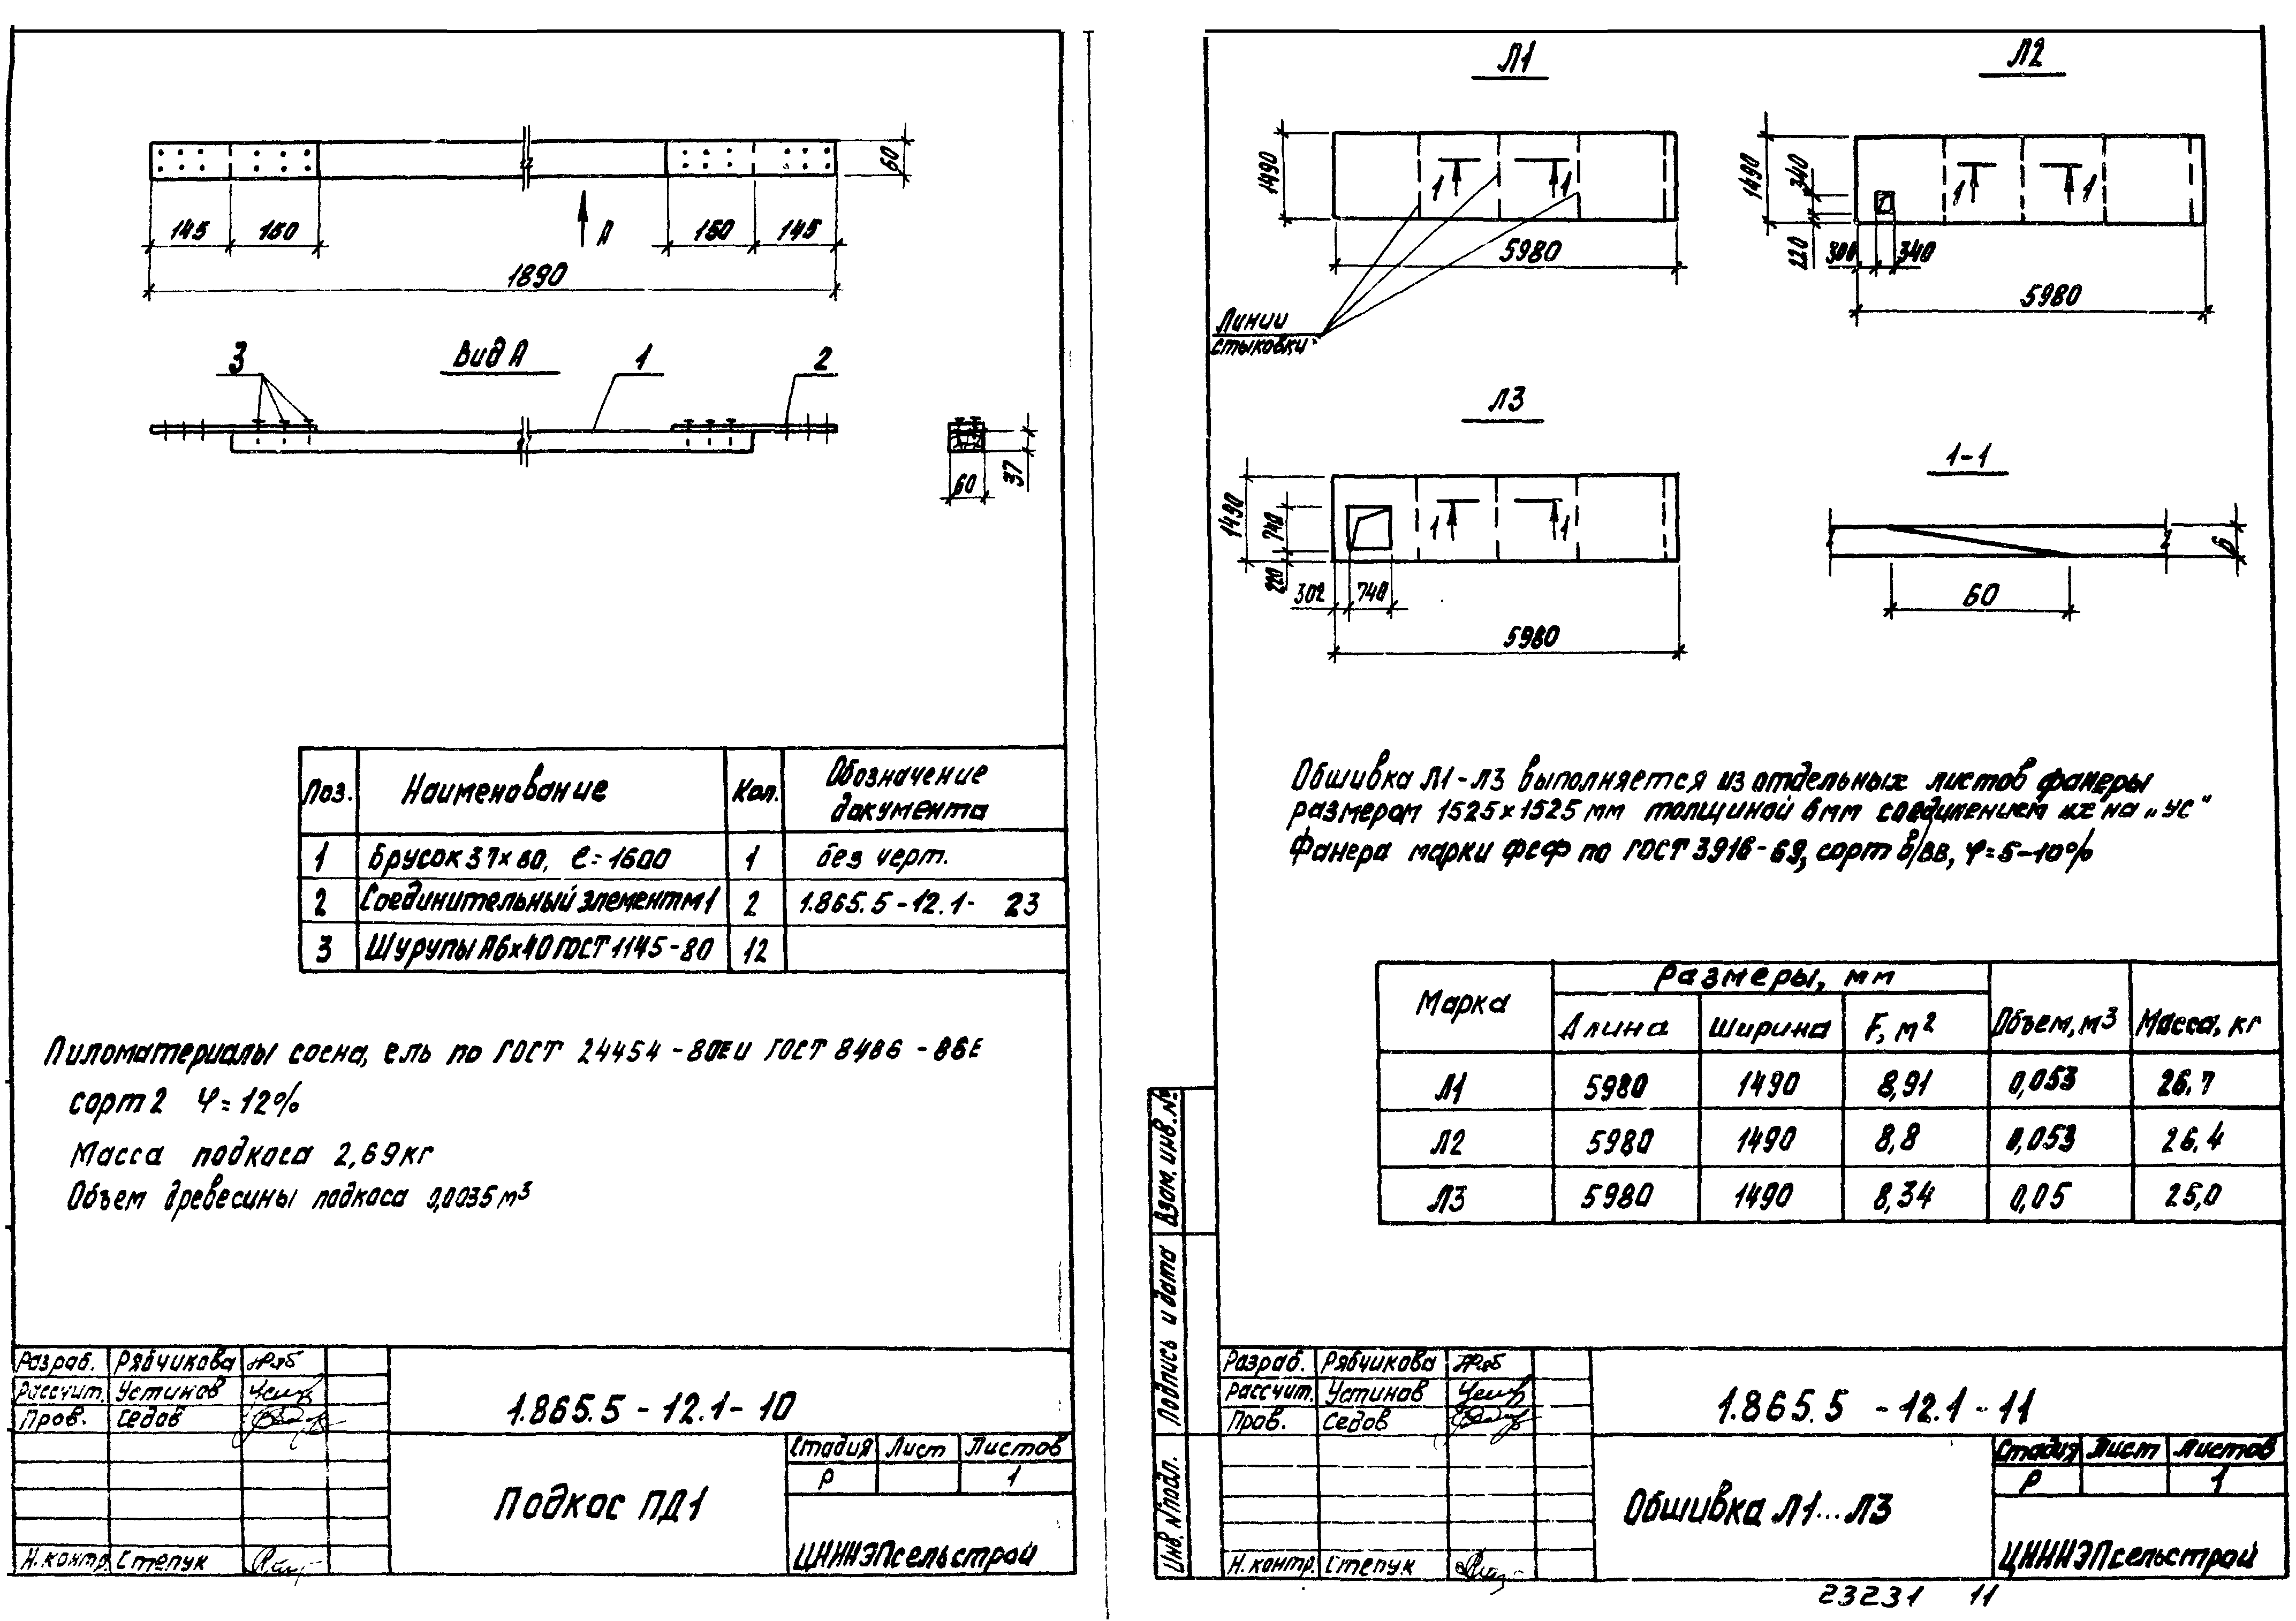 60
145
150
А
150
145
1890
3
Вид А
1
2
60
37
Поз.
Наименование
Кол.
Обозначение
документа
1
Брусок 37×60, ℓ=1600
1
без черт.
2
Соединительный элемент М1
2
1.865.5-12.1- 23
3
Шурупы А6×40 ГОСТ 1145-80
12
Пиломатериалы сосна, ель по ГОСТ 24454-80Е и ГОСТ 8486-86Е
сорт 2 φ=12%
Масса подкоса 2,69кг
Объем древесины подкоса 0,0035м³
Разраб. Рябчикова
Рассчит. Устинов
Пров. Седов
Н.контр. Степук
1.865.5-12.1-10
Подкос ПД1
Стадия Лист Листов
Р 1
ЦНИИЭПсельстрой
Л1
1490
1
1
5980
Линии
стыковки
Л2
1490
340
220
300
340
1
1
5980
Л3
1490
740
220
302
740
1
1
5980
1-1
6
60
Обшивка Л1-Л3 выполняется из отдельных листов фанеры
размером 1525×1525 мм толщиной 6мм соединением их на „УС"
Фанера марки ФСФ по ГОСТ 3916-69, сорт В/ВВ, φ=5-10%
Марка
Размеры, мм
Длина
Ширина
F, м²
Объем, м³
Масса, кг
Л1 5980 1490 8,91 0,053 26.7
Л2 5980 1490 8,8 0,053 26.4
Л3 5980 1490 8,34 0,05 25,0
Взам. инв. №
Подпись и дата
Инв. № подл.
Разраб. Рябчикова
Рассчит. Устинов
Пров. Седов
Н.контр. Степук
1.865.5 -12.1-11
Обшивка Л1...Л3
Стадия Лист Листов
Р 1
ЦНИИЭПсельстрой
23231 11